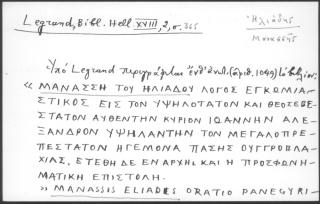 Legrand, Bibl. Hell. XVIII, 2, σ. 365
Ἠλιάδης
Μανασσῆς
Ὑπό Legrand περιγράφεται ἐνθ' ἀνωτ. (ἀριθ. 1049) τό βιβλίον:
« ΜΑΝΑΣΣΗ ΤΟΥ ΗΛΙΑΔΟΥ ΛΟΓΟΣ ΕΓΚΩΜΙΑ-
ΣΤΙΚΟΣ ΕΙΣ ΤΟΝ ΥΨΗΛΟΤΑΤΟΝ ΚΑΙ ΘΕΟΣΕΒΕ-
ΣΤΑΤΟΝ ΑΥΘΕΝΤΗΝ ΚΥΡΙΟΝ ΙΩΑΝΝΗΝ ΑΛΕ-
ΞΑΝΔΡΟΝ ΥΨΗΛΑΝΤΗΝ ΤΟΝ ΜΕΓΑΛΟΠΡΕ-
ΠΕΣΤΑΤΟΝ ΗΓΕΜΟΝΑ ΠΑΣΗΣ ΟΥΓΓΡΟΒΛΑ-
ΧΙΑΣ. ΕΤΕΘΗ ΔΕ ΕΝ ΑΡΧΗ ΚΑΙ Η ΠΡΟΣΦΩΝΗ-
ΜΑΤΙΚΗ ΕΠΙΣΤΟΛΗ.
» MANASSIS ELIADES ORATIO PANEGYRI-